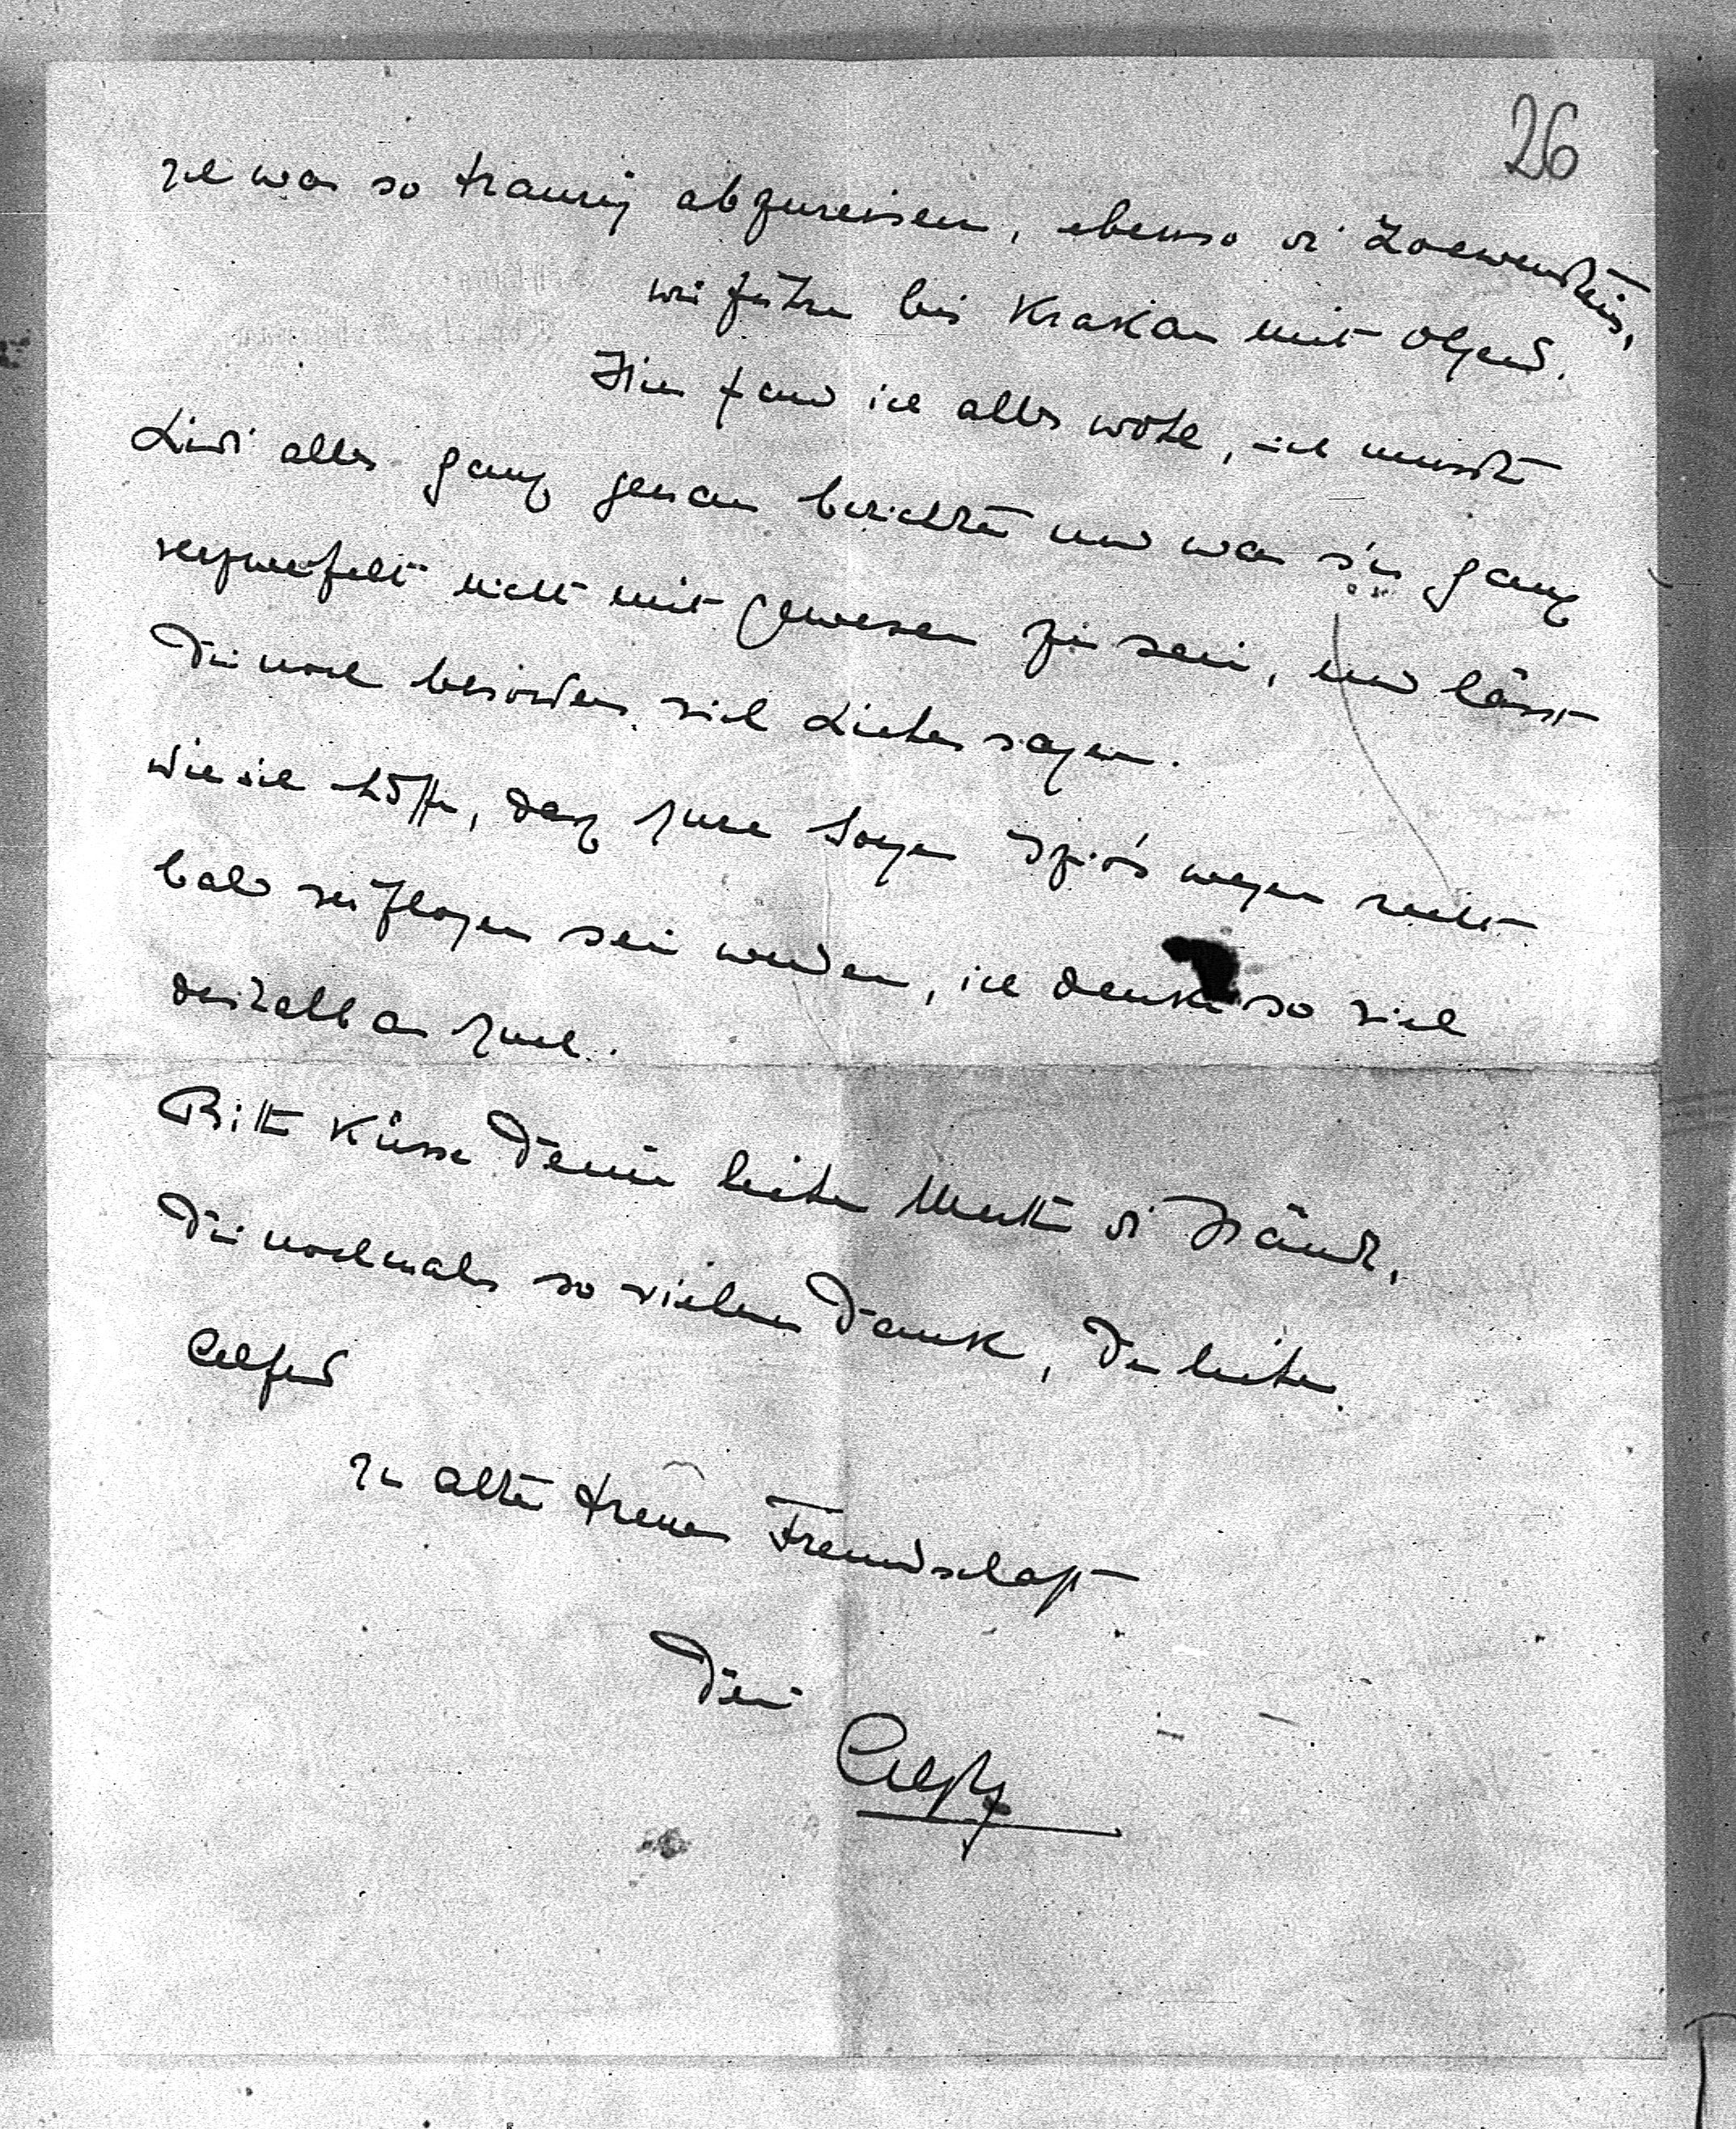 26
Ich war so traurig abzureisen, ebenso di Loewensteins,
wir fuhren bis Krakau mit
Hier fand ich alles wohl, ich musste
alles ganz genau berichten und war sie ganz
verzweifelt nicht mit gewesen zu sein, und lässt
Dir noch besonders viel Liebes sagen.
Wie ich hoffe, daß Eure Sorgen wegen recht
bald verflogen sein werden, ich denke so viel
deshalb an Euch.
Bitte küsse Deiner lieben Mutter di Hände,
Dir nochmals so vielen Dank, Du lieber
Alfred
In alter treuer Freundschaft
Dein